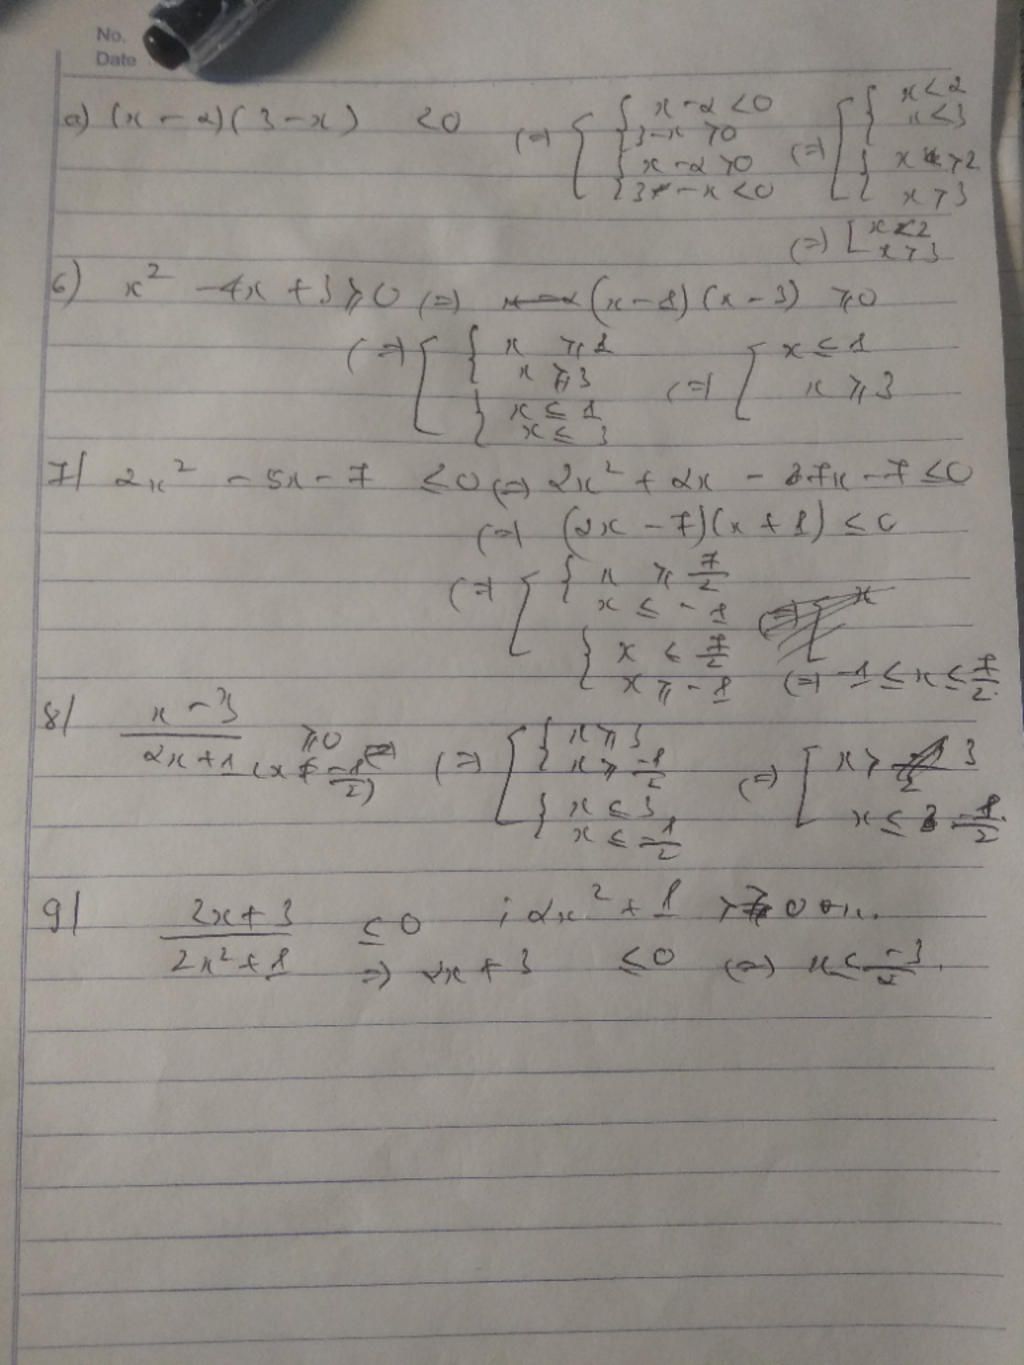 No.
Date
a) (x - 2)(3 - x) < 0 (=) [ { x - 2 < 0 (=) [ { x < 2
3 - x > 0 x < 3
{ x - 2 > 0 { x > 2
3 - x < 0 x > 3
(=) [ x < 2
x > 3
6) x² - 4x + 3 ≥ 0 (=) (x - 1)(x - 3) ≥ 0
(=) [ { x ≥ 1 (=) [ x ≤ 1
x ≥ 3 x ≥ 3
{ x ≤ 1
x ≤ 3
7/ 2x² - 5x - 7 ≤ 0 (=) 2x² + 2x - 7x - 7 ≤ 0
(=) (2x - 7)(x + 1) ≤ 0
(=) [ { x ≥ 7/2
x ≤ -1
{ x ≤ 7/2
x ≥ -1 (=) -1 ≤ x ≤ 7/2.
8/ (x - 3)/(2x + 1) ≥ 0 (x ≠ -1/2) (=) [ { x ≥ 3 (=) [ x ≥ 3
x ≥ -1/2 x ≤ -1/2.
{ x ≤ 3
x ≤ -1/2
9/ (2x + 3)/(2x² + 1) ≤ 0 ; 2x² + 1 > 0
=) 2x + 3 ≤ 0 (=) x ≤ -3/2.